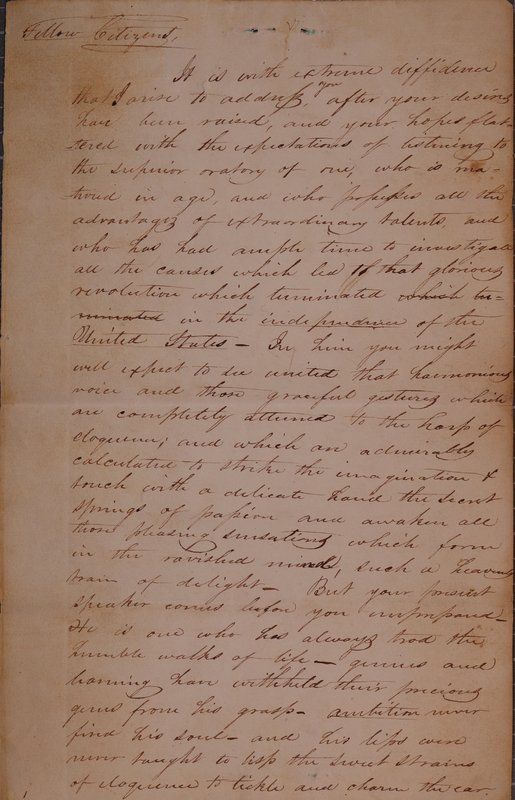 Fellow Citizens,
It is with extreme diffidence
that I arise to address, you after your desires
have been raised, and your hopes flat-
tered with the expectations of listening to
the superior oratory of one, who is ma-
tured in age, and who possesses all the
advantages of extraordinary talents, and
who has had ample time to investigate
all the causes which led to that glorious
revolution which terminated which ter-
minated in the independence of the
United States — In him you might
well expect to see united that harmonious
voice and those graceful gestures which
are completely attuned to the harp of
eloquence; and which are admirably
calculated to strike the imagination &
touch with a delicate hand the secret
springs of passion and awaken all
those pleasing sensations which form
in the ravished mind, such a heavenly
train of delight — But your present
speaker comes before you unprepared —
He is one who has always trod the
humble walks of life — genius and
learning have withheld their precious
gems from his grasp — ambition never
fired his soul — and his lips were
never taught to lisp the sweet strains
of eloquence to tickle and charm the ear.